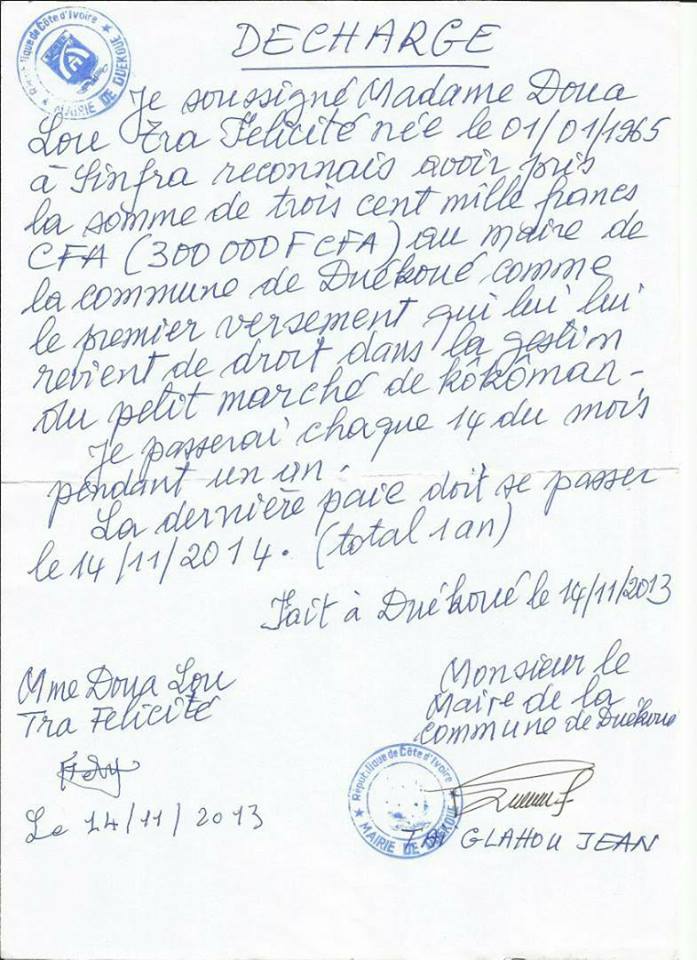 République de Côte d'Ivoire
MAIRIE DE DUEKOUE
DECHARGE
Je soussigné Madame Doua
Lou Tra Felicité née le 01/01/1965
à Sinfra reconnais avoir pris
la somme de trois cent mille francs
CFA (300 000 F CFA) au maire de
la commune de Duékoué comme
le premier versement qui lui lui
revient de droit dans la gestion
du petit marché de kôkôman.
Je passerai chaque 14 du mois
pendant un an.
La dernière paie doit se passer
le 14/11/2014. (total 1 an)
Fait à Duékoué le 14/11/2013
Mme Doua Lou
Tra Felicité
Le 14/11/2013
Monsieur le
Maire de la
Commune de Duékoué
République de Côte d'Ivoire
MAIRIE DE DUEKOUE
GLAHOU JEAN